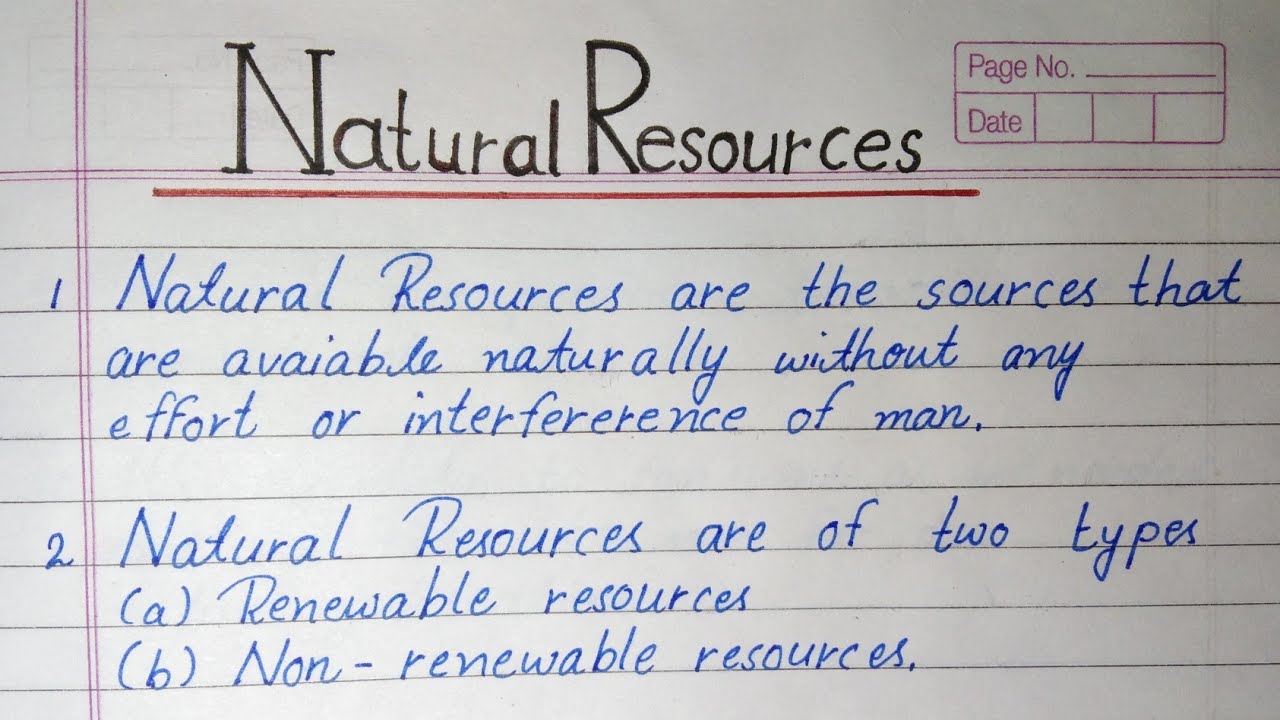 Natural Resources
Page No.
Date
1 Natural Resources are the sources that
are avaiable naturally without any
effort or interfererence of man.
2 Natural Resources are of two types
(a) Renewable resources
(b) Non-renewable resources.